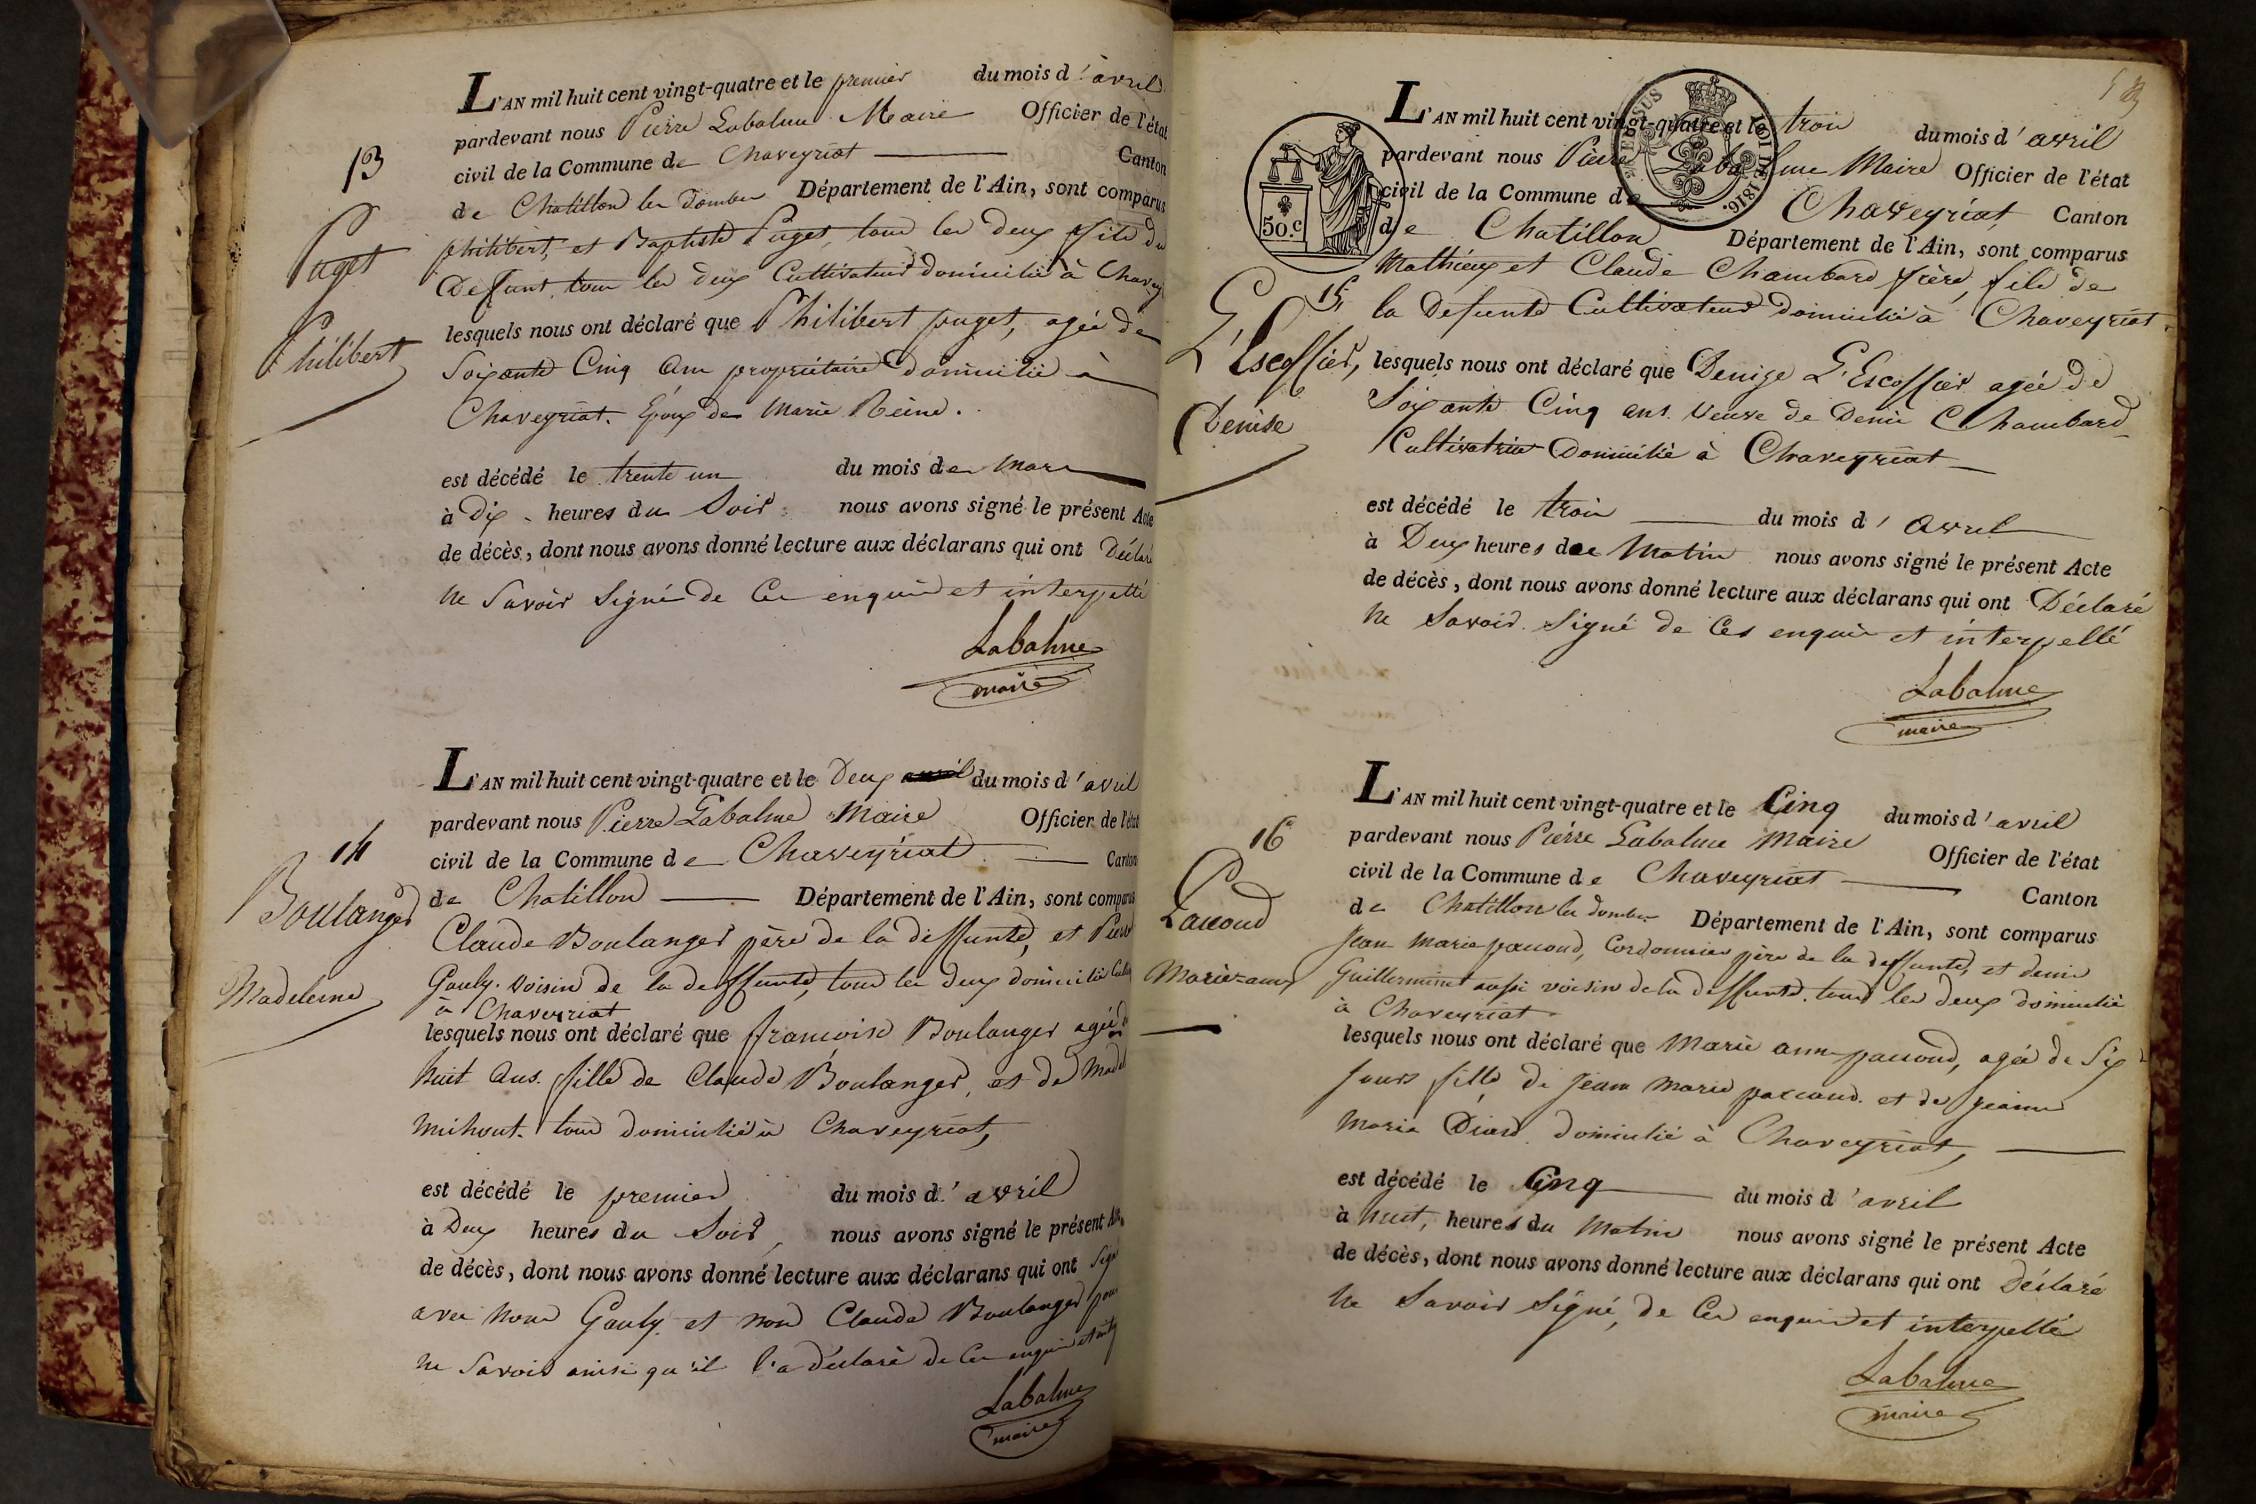 13
Puget
Philibert
L'AN mil huit cent vingt-quatre et le premier du mois d'avril
pardevant nous Pierre Labalme Maire Officier de l'état
civil de la Commune de Chaveyriat Canton
de Chatillon les Dombes Département de l'Ain, sont comparus
philibert, et Baptiste Puget, tous les deux fils du
Defunt, tous les deux Cultivateurs domicilié à Chavey
lesquels nous ont déclaré que Philibert puget, agée de
Soixante Cinq ans propriétaire domicilié à
Chaveyriat. Epoux de Marie Reine.
est décédé le trente un du mois de Mars
à Dix heures du Soir nous avons signé le présent Acte
de décès, dont nous avons donné lecture aux déclarans qui ont Déclaré
ne Savoir Signé de Ces enquis et interpellé
Labalme
maire
14
Boulanger
Madelene
L'AN mil huit cent vingt-quatre et le Deux avril du mois d'avril
pardevant nous Pierre Labalme Maire Officier de l'état
civil de la Commune de Chaveyriat Canton
de Chatillon Département de l'Ain, sont comparus
Claude Boulanger père de la deffunte, et Pierre
Gauly. voisin de la deffunte, tous les deux domicilié
à Chaveyriat
lesquels nous ont déclaré que francoise Boulanger agée de
huit ans. fille de Claude Boulanger, et de Madel
Mihout. tous domicilié à Chaveyriat,
est décédé le premier du mois d'avril
à Deux heures du Soir, nous avons signé le présent Acte
de décès, dont nous avons donné lecture aux déclarans qui ont Signé
avec nous Gauly. et non Claude Boulanger pour
ne Savoir ainsi qu'il l'a déclaré de Ces enquis et
Labalme
maire
50.c
LOI DE 1816.
15
L'Escoffier,
Denise
L'AN mil huit cent vingt-quatre et le trois du mois d'avril
pardevant nous Pierre Labalme Maire Officier de l'état
civil de la Commune de Chaveyriat Canton
de Chatillon Département de l'Ain, sont comparus
Mathieu et Claude Chambard frère, fils de
la Defunte Cultivateurs domicilié à Chaveyriat.
lesquels nous ont déclaré que Denise L'Escoffier agée de
Soixante Cinq ans. Veuve de Denis Chambard
Cultivatrice Domicilié à Chaveyriat
est décédé le trois du mois d'avril
à Deux heures de Matin nous avons signé le présent Acte
de décès, dont nous avons donné lecture aux déclarans qui ont Déclaré
ne Savoir Signé de Ces enquis et interpellé
Labalme
maire
16
Paccoud
Marie-anne
L'AN mil huit cent vingt-quatre et le Cinq du mois d'avril
pardevant nous Pierre Labalme Maire Officier de l'état
civil de la Commune de Chaveyriat Canton
de Chatillon les dombes Département de l'Ain, sont comparus
Jean Marie paccoud, Cordonnier père de la deffunte, et denis
Guillerminet aussi voisin de la deffunte. tous les deux domicilié
à Chaveyriat
lesquels nous ont déclaré que Marie anne paccoud, agée de Six
jours fille de Jean Marie paccoud. et de Jeanne
Marie Diard domicilié à Chaveyriat,
est décédé le Cinq du mois d'avril
à huit, heures du Matin nous avons signé le présent Acte
de décès, dont nous avons donné lecture aux déclarans qui ont Déclaré
ne Savoir Signé, de Ces enquis et interpellé
Labalme
maire